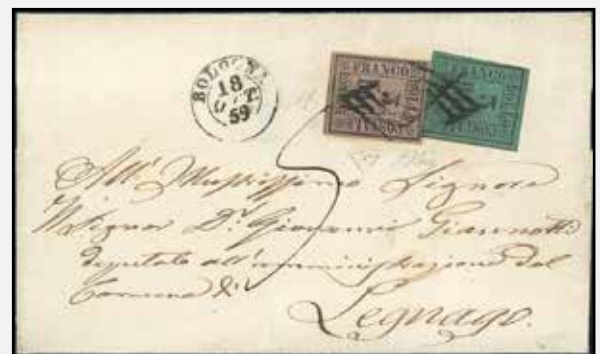 BOLOGNA
18
OTT
59
FRANCO
BOLLO
FRANCO
BOLLO
5
All' Illustrissimo Signore
Il Signor Dr. Giovanni Giannotti
deputato all'amministrazione del
Comune di
Legnago.